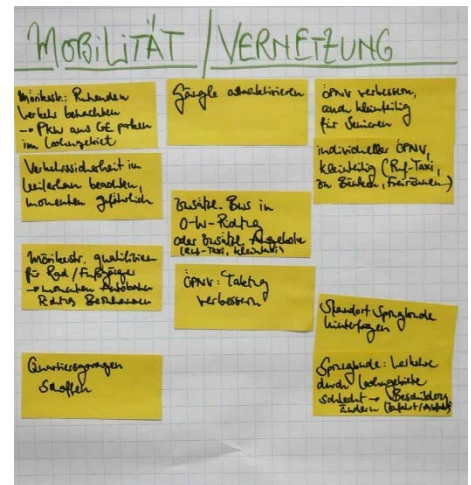 MOBILITÄT / VERNETZUNG
Mörikestr.: Ruhenden
Verkehr betrachten
→ PKW aus GE parken
im Wohngebiet
Verkehrssicherheit im
Weilerhau beachten,
momentan gefährlich
Mörikestr. qualifizieren
für Rad/Fußgänger
→ momentan Autobahn
Rdtg
Quartiersgaragen
schaffen
Gängle attraktivieren
Zusätzl. Bus in
O-W-Rdtg
oder zusätzl. Angebote
(Ruf-Taxi, Kleintaxi)
ÖPNV: Taktung
verbessern
ÖPNV verbessern,
auch kleinteilig
für Senioren
individueller ÖPNV,
kleinteilig (Ruf-Taxi,
zu Bänken, Freiräumen..)
Standort
hinterfragen
durch Wohngebiete
schlecht → Beschilderg
ändern